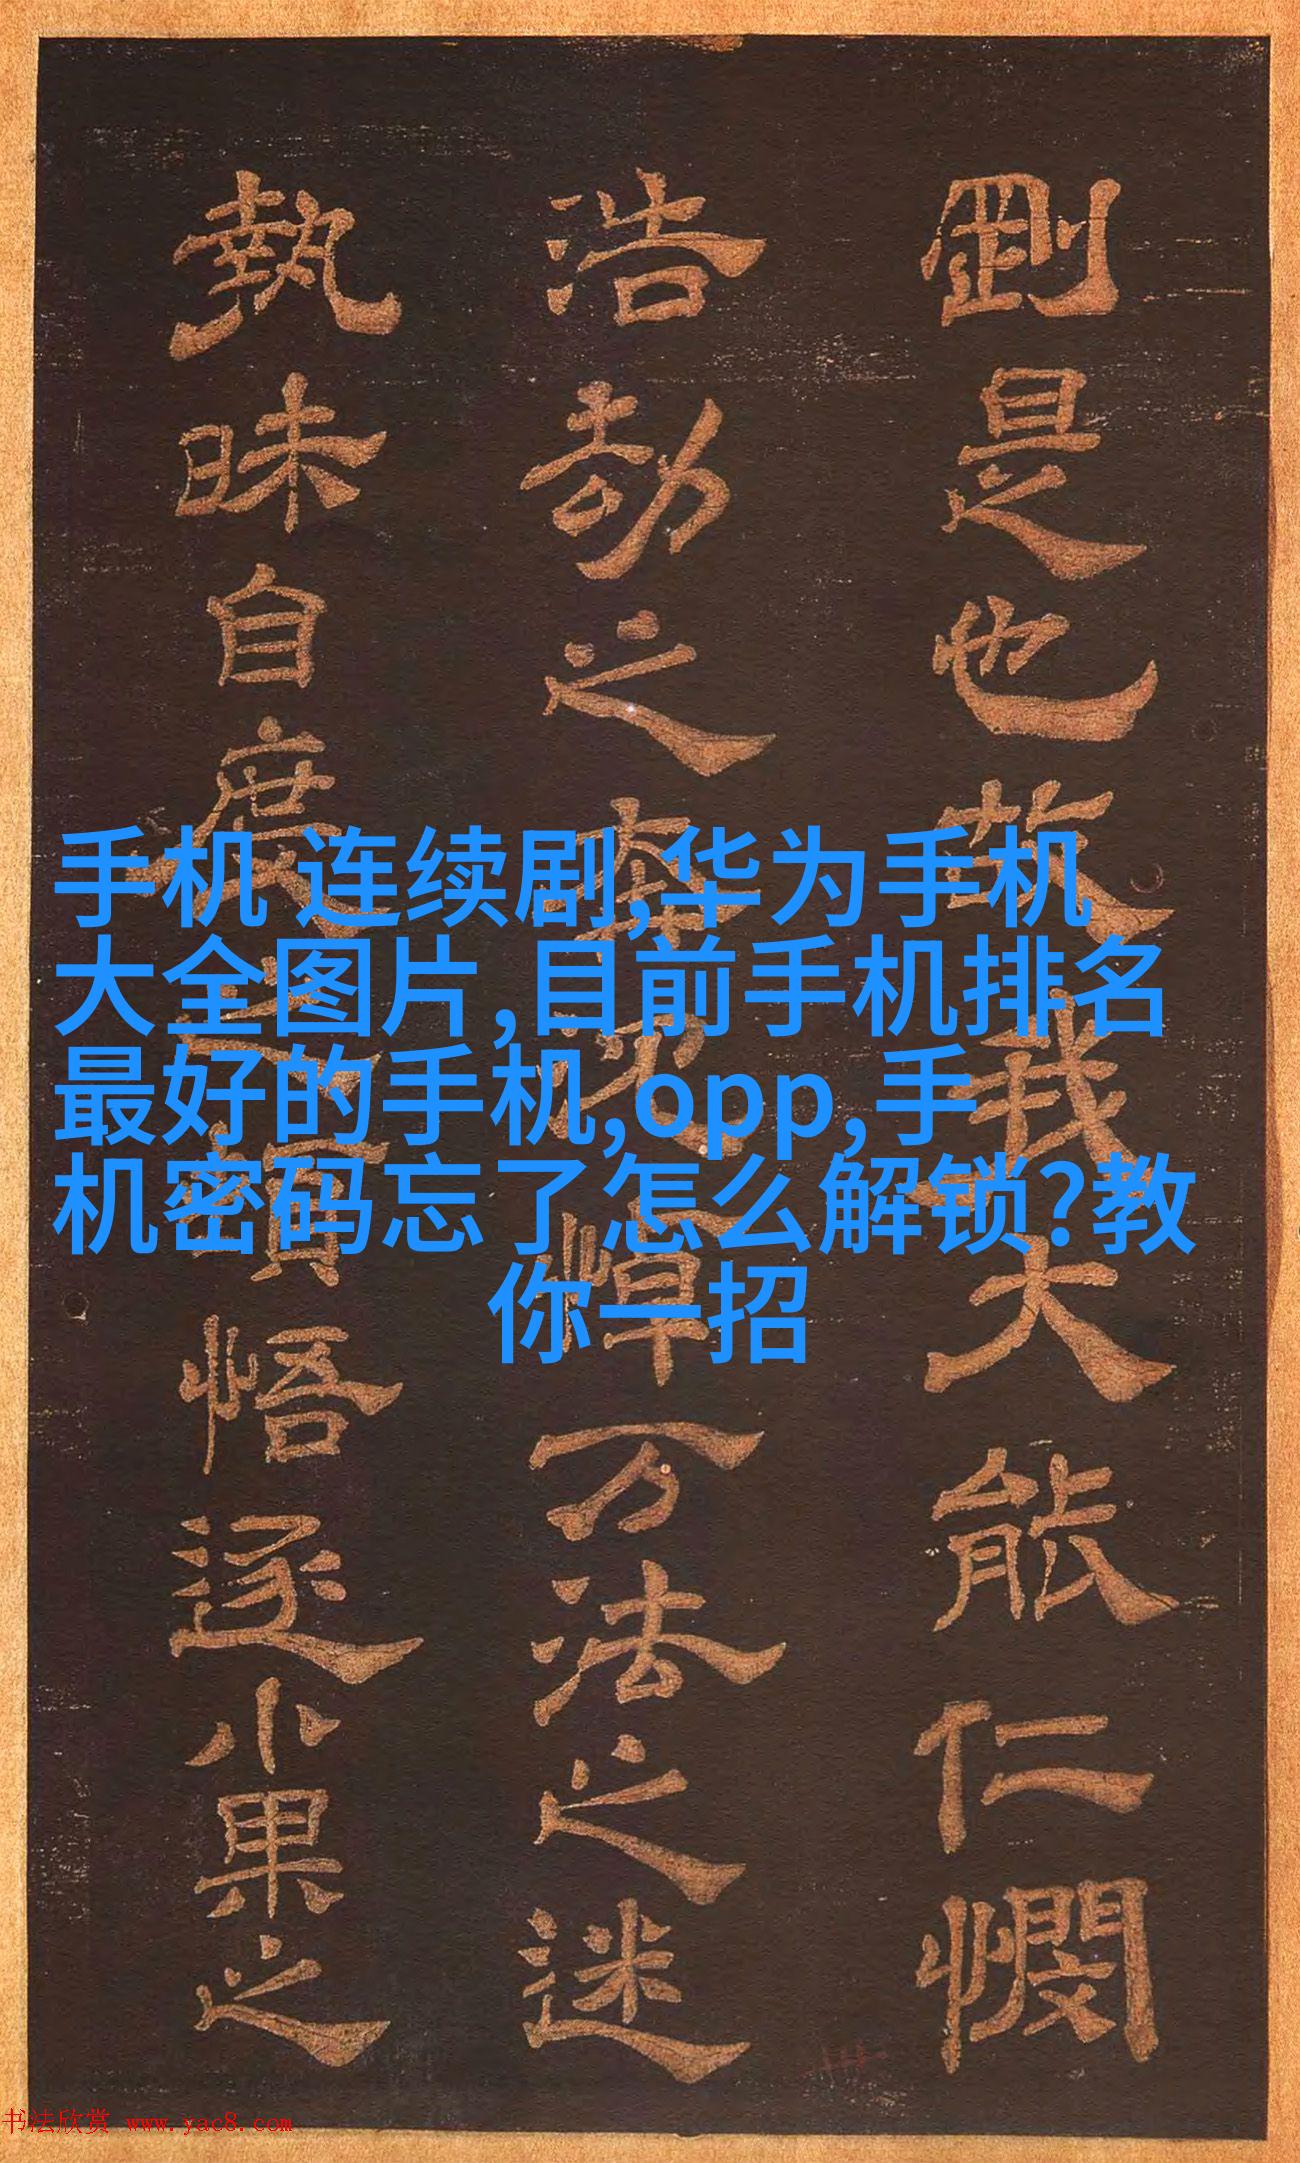 剛是也故我大能仁憫
浩劫之悼万法之迷
執昧自度之悟逐小果之
手机 连续剧,华为手机
大全图片,目前手机排名
最好的手机,opp,手
机密码忘了怎么解锁?教
你一招
书法欣赏 www.yac8.com